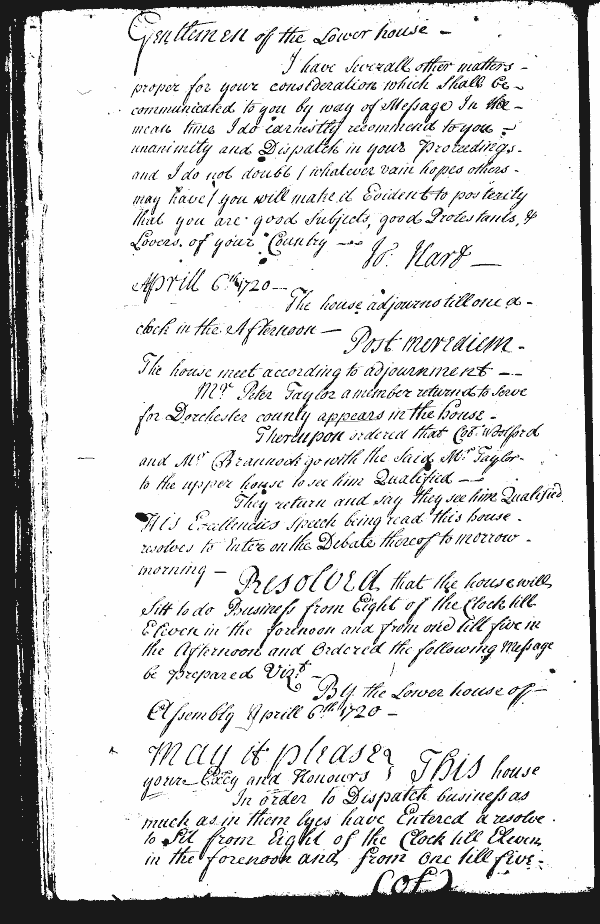 Gentlemen of the Lower house -
I have Severall other matters -
proper for your consideration which Shall be -
communicated to you by way of Message In the -
mean time I do earnestly recommend to you -
unanimity and Dispatch in your Proceedings -
and I do not doubt (whatever vain hopes others -
may have) you will make it Evident to posterity
that you are good Subjects, good Protestants, &
Lovers of your Country --
Jo. Hart -
Aprill 6th 1720 -
The house adjourns till one a -
clock in the Afternoon -
Post merediem -
The house meet according to adjournment --
Mr Peter Taylor a member returnd to serve
for Dorchester county appears in the house -
Thereupon ordered that Col. Woolford
and Mr Brannock go with the Said Mr Taylor
to the upper house to see him Qualified --
They return and say they see him Qualified
His Excellencies Speech being read this house -
resolves to Enter on the Debate thereof to morrow -
morning -
Resolved that the house will
Sitt to do Business from Eight of the Clock till
Eleven in the forenoon and from one till five in
the Afternoon and Ordered the following Message
be prepared Vizt -
By the Lower house of -
Assembly Aprill 6th 1720 -
May it please
your Excy and Honours } This house
In order to Dispatch business as
much as in them lyes have Entered a resolve
to Sit from Eight of the Clock till Eleven
in the forenoon and from one till five -
(of)